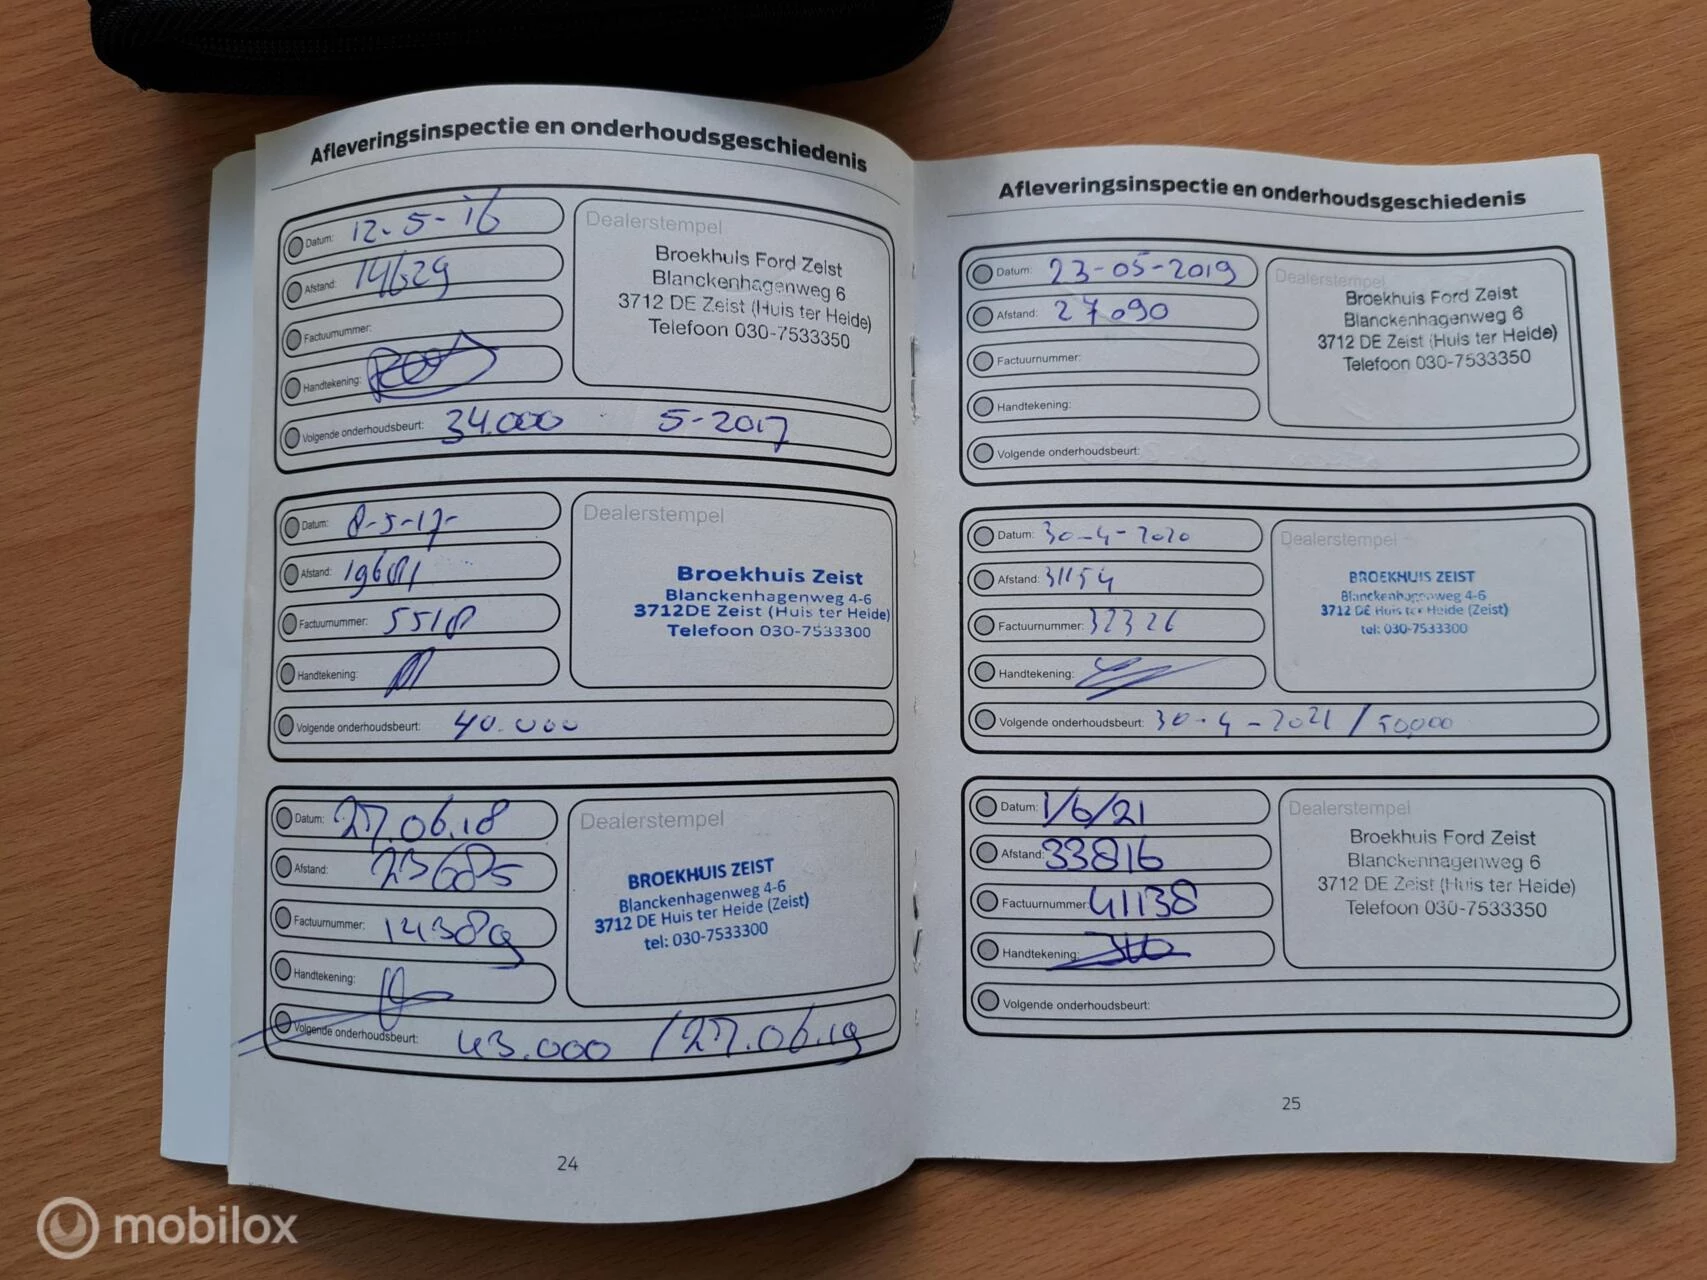 Afleveringsinspectie en onderhoudsgeschiedenis
Datum: 12-5-'16
Afstand: 14629
Factuurnummer:
Handtekening:
Volgende onderhoudsbeurt: 34.000 5-2017
Dealerstempel
Broekhuis Ford Zeist
Blanckenhagenweg 6
3712 DE Zeist (Huis ter Heide)
Telefoon 030-7533350
Datum: 8-5-17-
Afstand: 19681
Factuurnummer: 5518
Handtekening:
Volgende onderhoudsbeurt: 40.000
Dealerstempel
Broekhuis Zeist
Blanckenhagenweg 4-6
3712DE Zeist (Huis ter Heide)
Telefoon 030-7533300
Datum: 27.06.18
Afstand: 23685
Factuurnummer: 14389
Handtekening:
Volgende onderhoudsbeurt: 43.000 / 27.06.19
Dealerstempel
BROEKHUIS ZEIST
Blanckenhagenweg 4-6
3712 DE Huis ter Heide (Zeist)
tel: 030-7533300
24
Afleveringsinspectie en onderhoudsgeschiedenis
Datum: 23-05-2019
Afstand: 27090
Factuurnummer:
Handtekening:
Volgende onderhoudsbeurt:
Dealerstempel
Broekhuis Ford Zeist
Blanckenhagenweg 6
3712 DE Zeist (Huis ter Heide)
Telefoon 030-7533350
Datum: 30-4-2020
Afstand: 31154
Factuurnummer: 32326
Handtekening:
Volgende onderhoudsbeurt: 30-4-2021 / 50,000
Dealerstempel
BROEKHUIS ZEIST
Blanckenhagenweg 4-6
3712 DE Huis ter Heide (Zeist)
tel: 030-7533300
Datum: 1/6/21
Afstand: 33816
Factuurnummer: 41138
Handtekening:
Volgende onderhoudsbeurt:
Dealerstempel
Broekhuis Ford Zeist
Blanckenhagenweg 6
3712 DE Zeist (Huis ter Heide)
Telefoon 030-7533350
25
mobilox